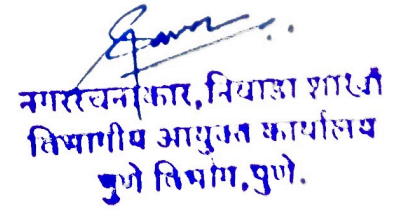 नगररचनाकार, निवाडा शाखा
विभागीय आयुक्त कार्यालय
पुणे विभाग, पुणे.